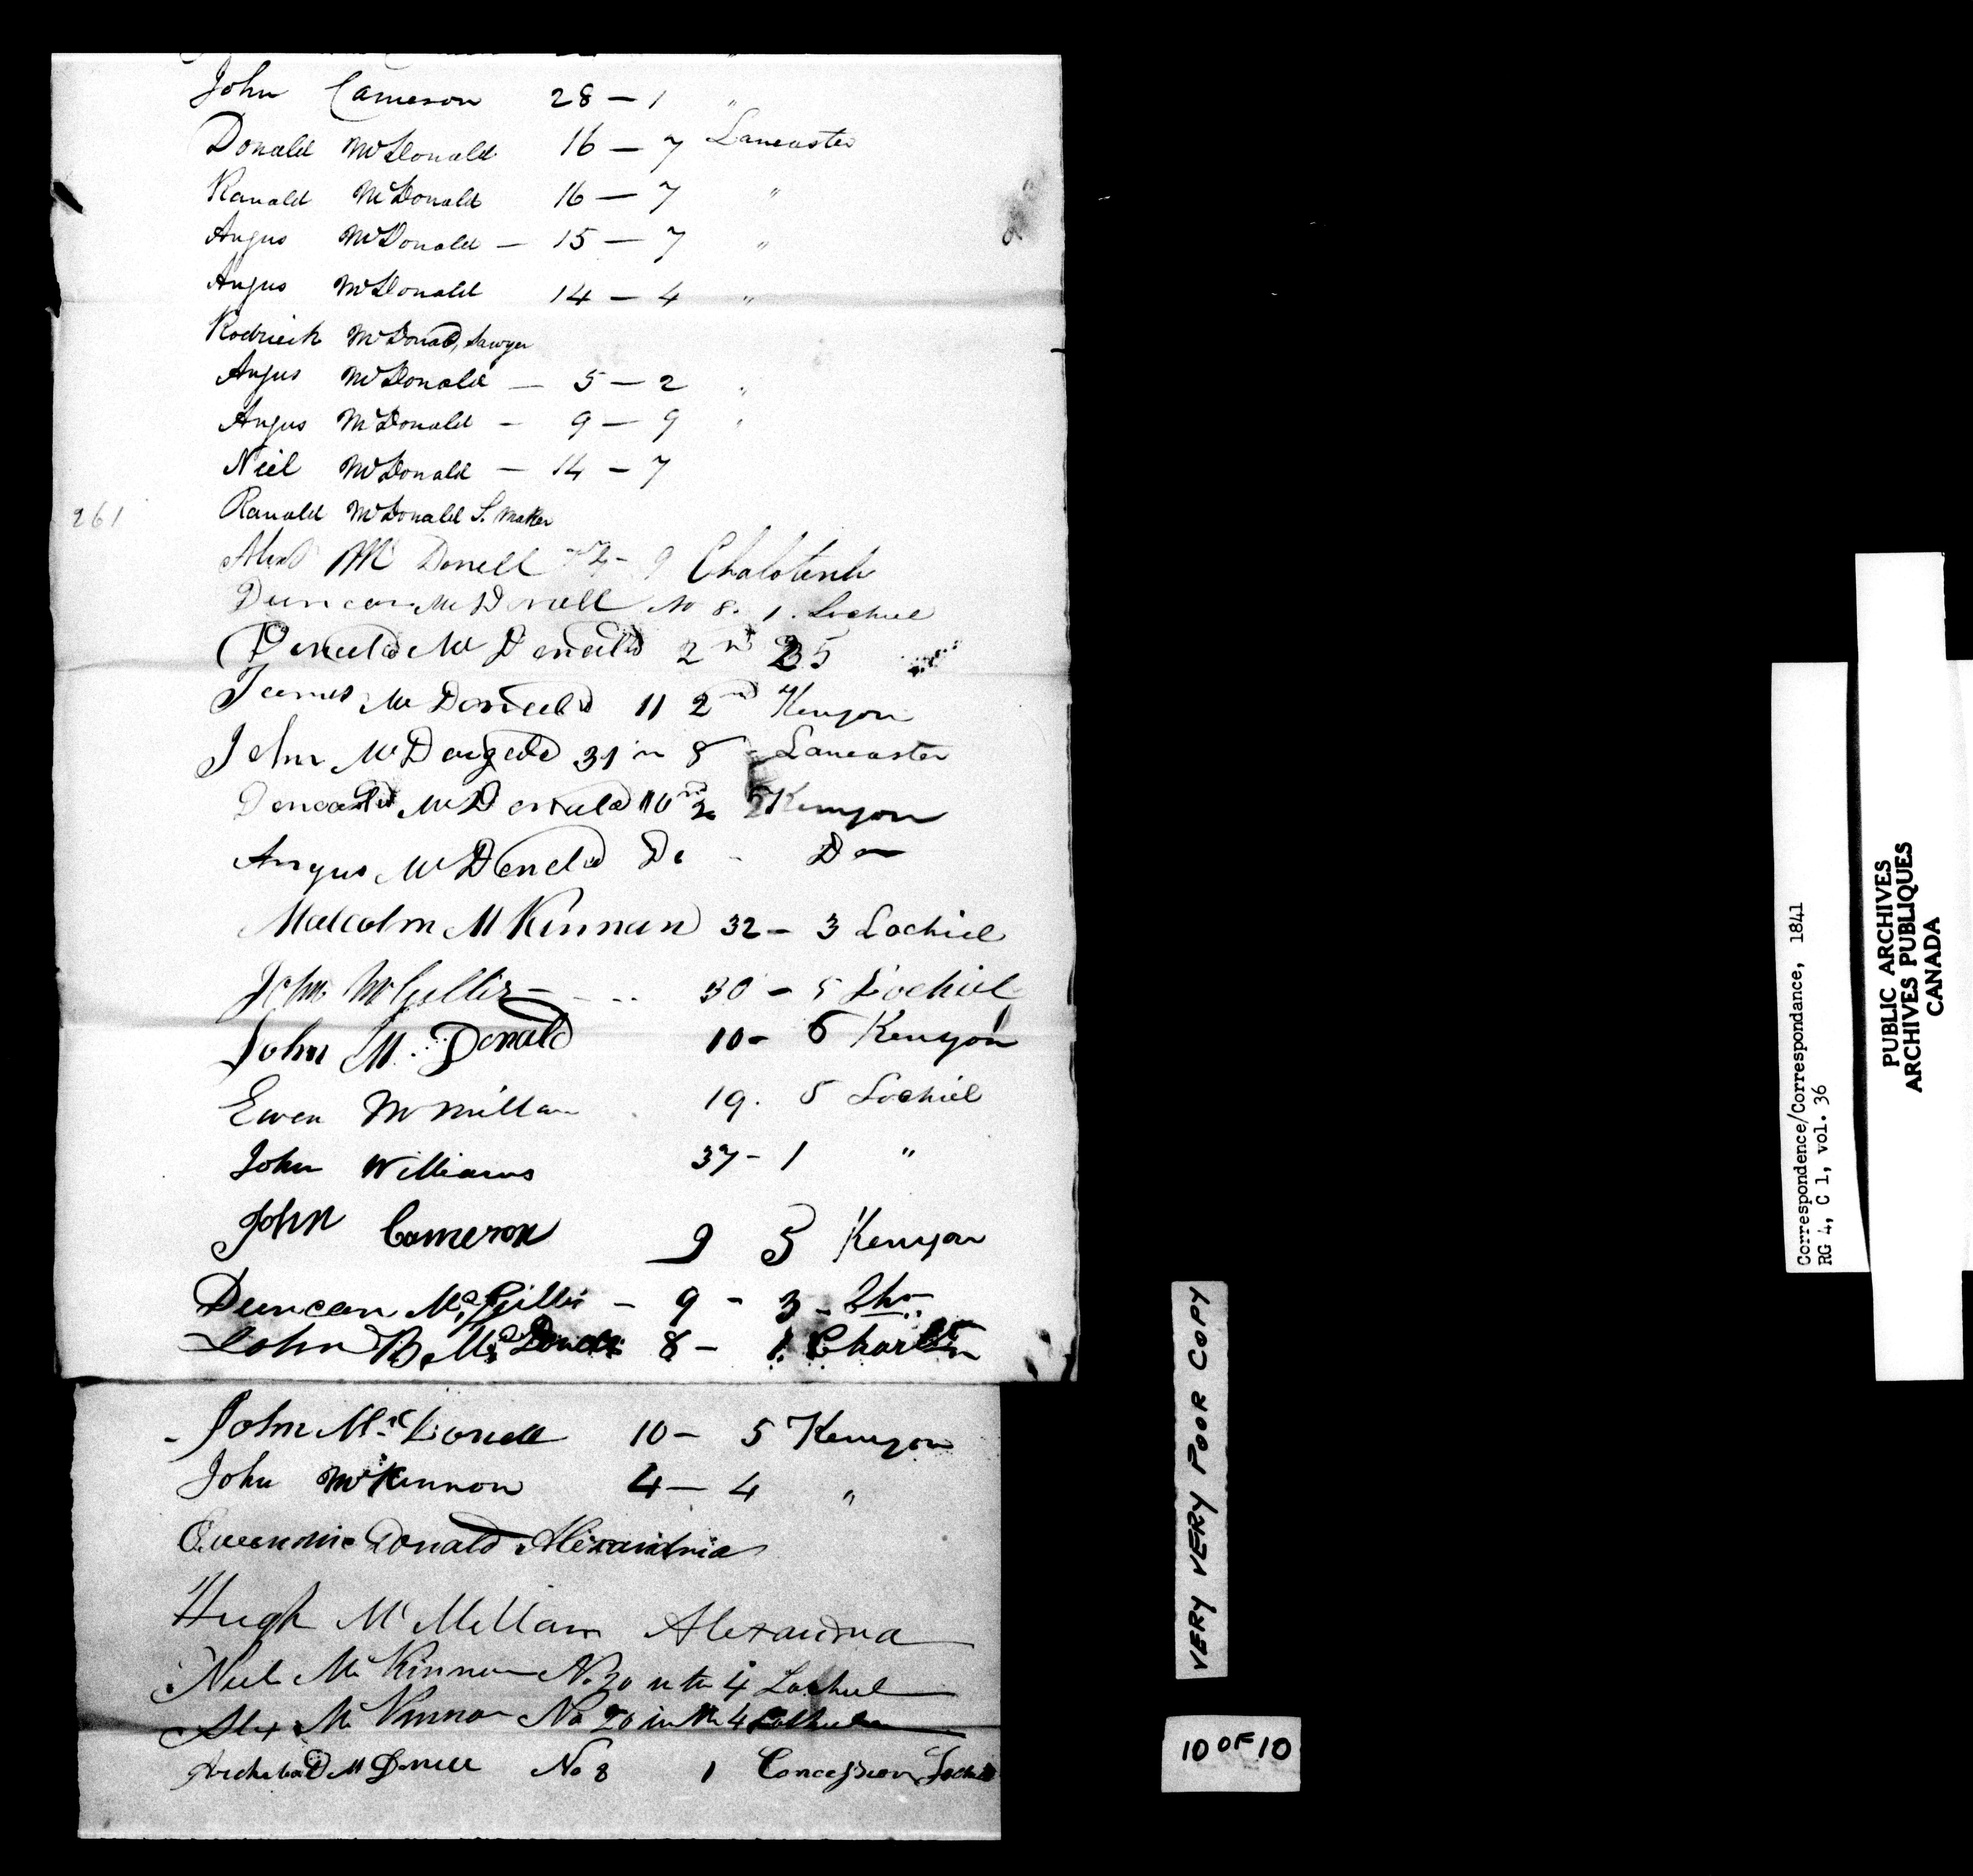 John Cameron 28 – 1 "
Donald McDonald 16 – 7 Lancaster
Ranald McDonald 16 – 7 "
Angus McDonald – 15 – 7 "
Angus McDonald 14 – 4 "
Rodrieck McDonald, Sawyer
Angus McDonald – 5 – 2 "
Angus McDonald – 9 – 9 "
Niel McDonald – 14 – 7
261 Ranald McDonald S. Maker
Alexr Mc Donell 9
Duncan McDonell No 8. 1. Lochiel
Donald Mc Donald 2nd 35
James Mc Donald 11 2nd Kenyon
John McDougald 31 in 8 Lancaster
McDonald 10 Kenyon
Angus McDonald Do - Do
Malcolm McKinnan 32 – 3 Lochiel
John McGillis – – – 30 – 5 Lochiel
John Mc. Donald 10 – 6 Kenyon
Ewen McMillan 19. 5 Lochiel
John Williams 37 – 1 "
John Cameron 9 5 Kenyon
Duncan McGillis – 9 – 3 –
John B. McDonell 8 – 1.
John McDonell 10 – 5 Kenyon
John McKinnon 4 – 4 "
Ewen Mc Donald Alexandria
Hugh Mc Millan Alexandria
Neil McKinnon No 20 in the 4 Lochiel
Alex McKinnon No 20 in the 4 Lochiel
Archebald McDonell No 8 1 Concession Lochiel
VERY VERY POOR COPY
10 OF 10
Correspondence/Correspondance, 1841
RG 4, C 1, vol. 36
PUBLIC ARCHIVES
ARCHIVES PUBLIQUES
CANADA